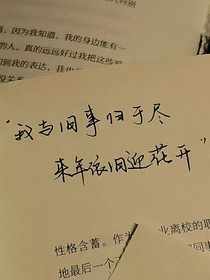 因为我知道，我的身边能有一
的人，真的远远好过我把这些
“我与旧事归于尽
来年依旧迎花开”
性格含蓄。作为
业离校的职
地最后一个